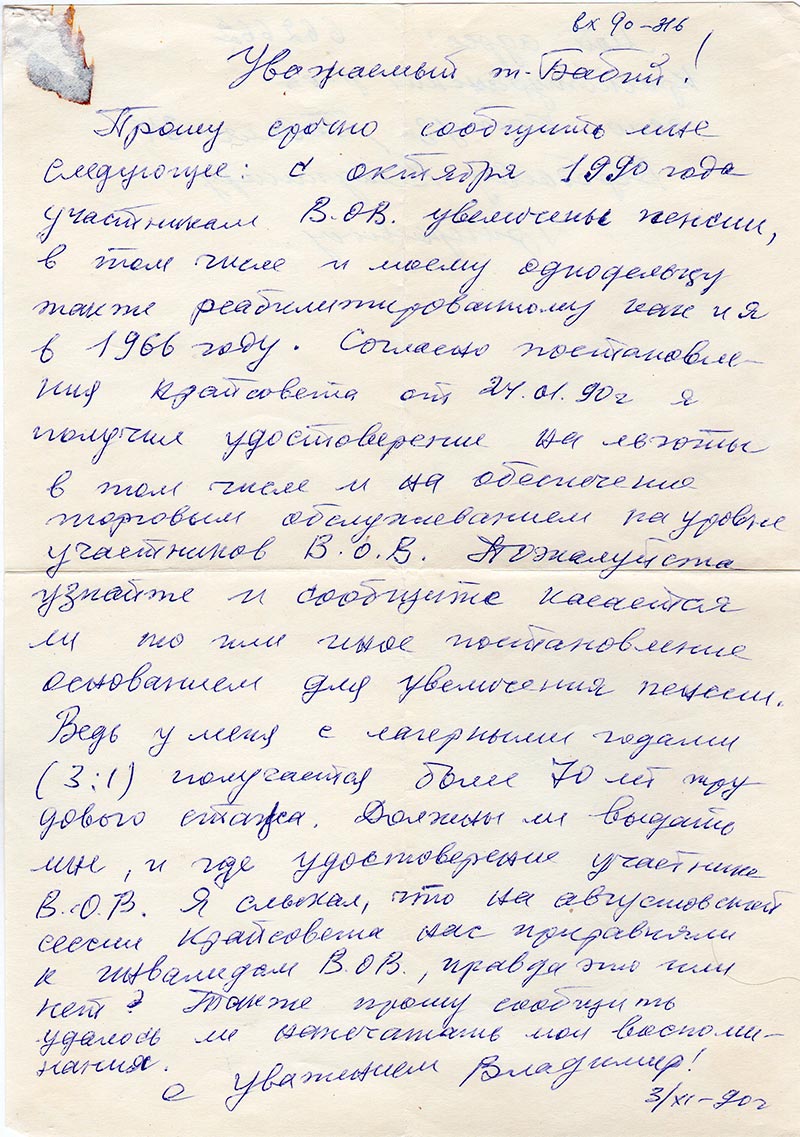 вх 90-316
Уважаемый т. Бабий!
Прошу срочно сообщить мне
следующее: с октября 1990 года
участникам В.О.В. увеличены пенсии,
в том числе и моему однодельцу
также реабилитированному как и я
в 1966 году. Согласно постановле-
ния крайсовета от 24.01.90г я
получил удостоверение на льготы
в том числе и на обеспечение
торговым обслуживанием на уровне
участников В.О.В. Пожалуйста
узнайте и сообщите касается
ли то или иное постановление
основанием для увеличения пенсии.
Ведь у меня с лагерными годами
(3:1) получается более 70 лет тру
дового стажа. Должны ли выдать
мне, и где удостоверение участника
В.О.В. Я слыхал, что на августовской
сессии Крайсовета нас приравняли
к инвалидам В.О.В., правда это или
нет? Также прошу сообщить
удалось ли напечатать мои воспоми-
нания.
С уважением Владимир!
3/XI-90г